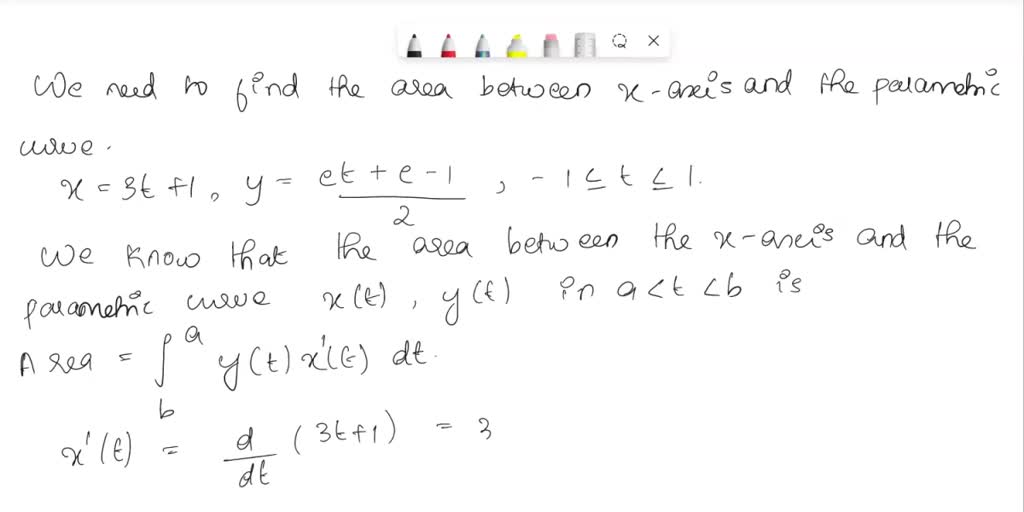 We need to find the area between x-axis and the parametric
curve.
x = 3t + 1, y = (et + e - 1)/2, -1 ≤ t ≤ 1.
We know that the area between the x-axis and the
parametric curve x(t), y(t) in a < t < b is
Area = ∫_b^a y(t) x'(t) dt.
x'(t) = d/dt (3t+1) = 3